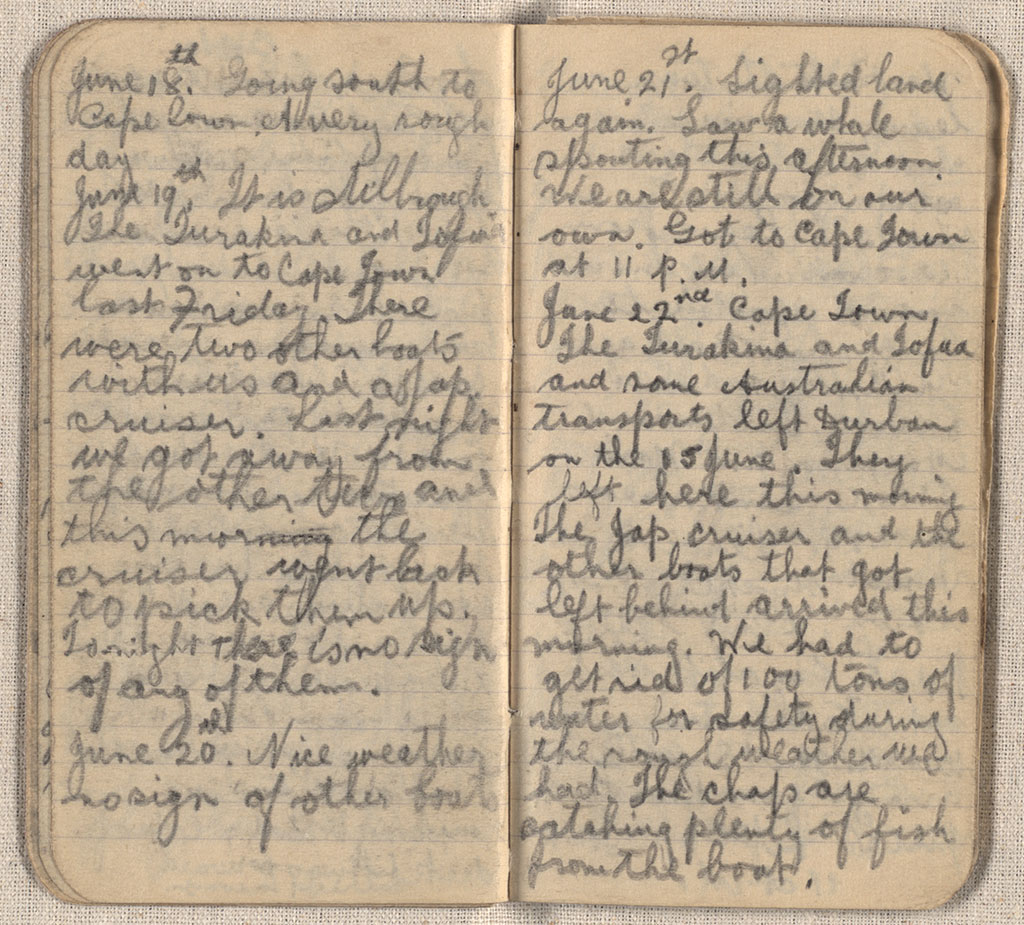 June 18th. Going south to
Cape Town. A very rough
day
June 19th. It is still rough
The Turakina and Tofua
went on to Cape Town
last Friday. There
were two other boats
with us and a Jap.
cruiser. Last night
we got away from
the other two and
this morning the
cruiser went back
to pick them up.
Tonight there is no sign
of any of them.
June 20th. Nice weather
no sign of other boats
June 21st. Sighted land
again. Saw a whale
spouting this afternoon.
We are still on our
own. Got to Cape Town
at 11 P.M.
June 22nd. Cape Town.
The Turakina and Tofua
and some Australian
transports left Durban
on the 15 June. They
left here this morning
The Jap cruiser and the
other boats that got
left behind arrived this
morning. We had to
get rid of 100 tons of
water for safety during
the rough weather we
had. The chaps are
catching plenty of fish
from the boat.